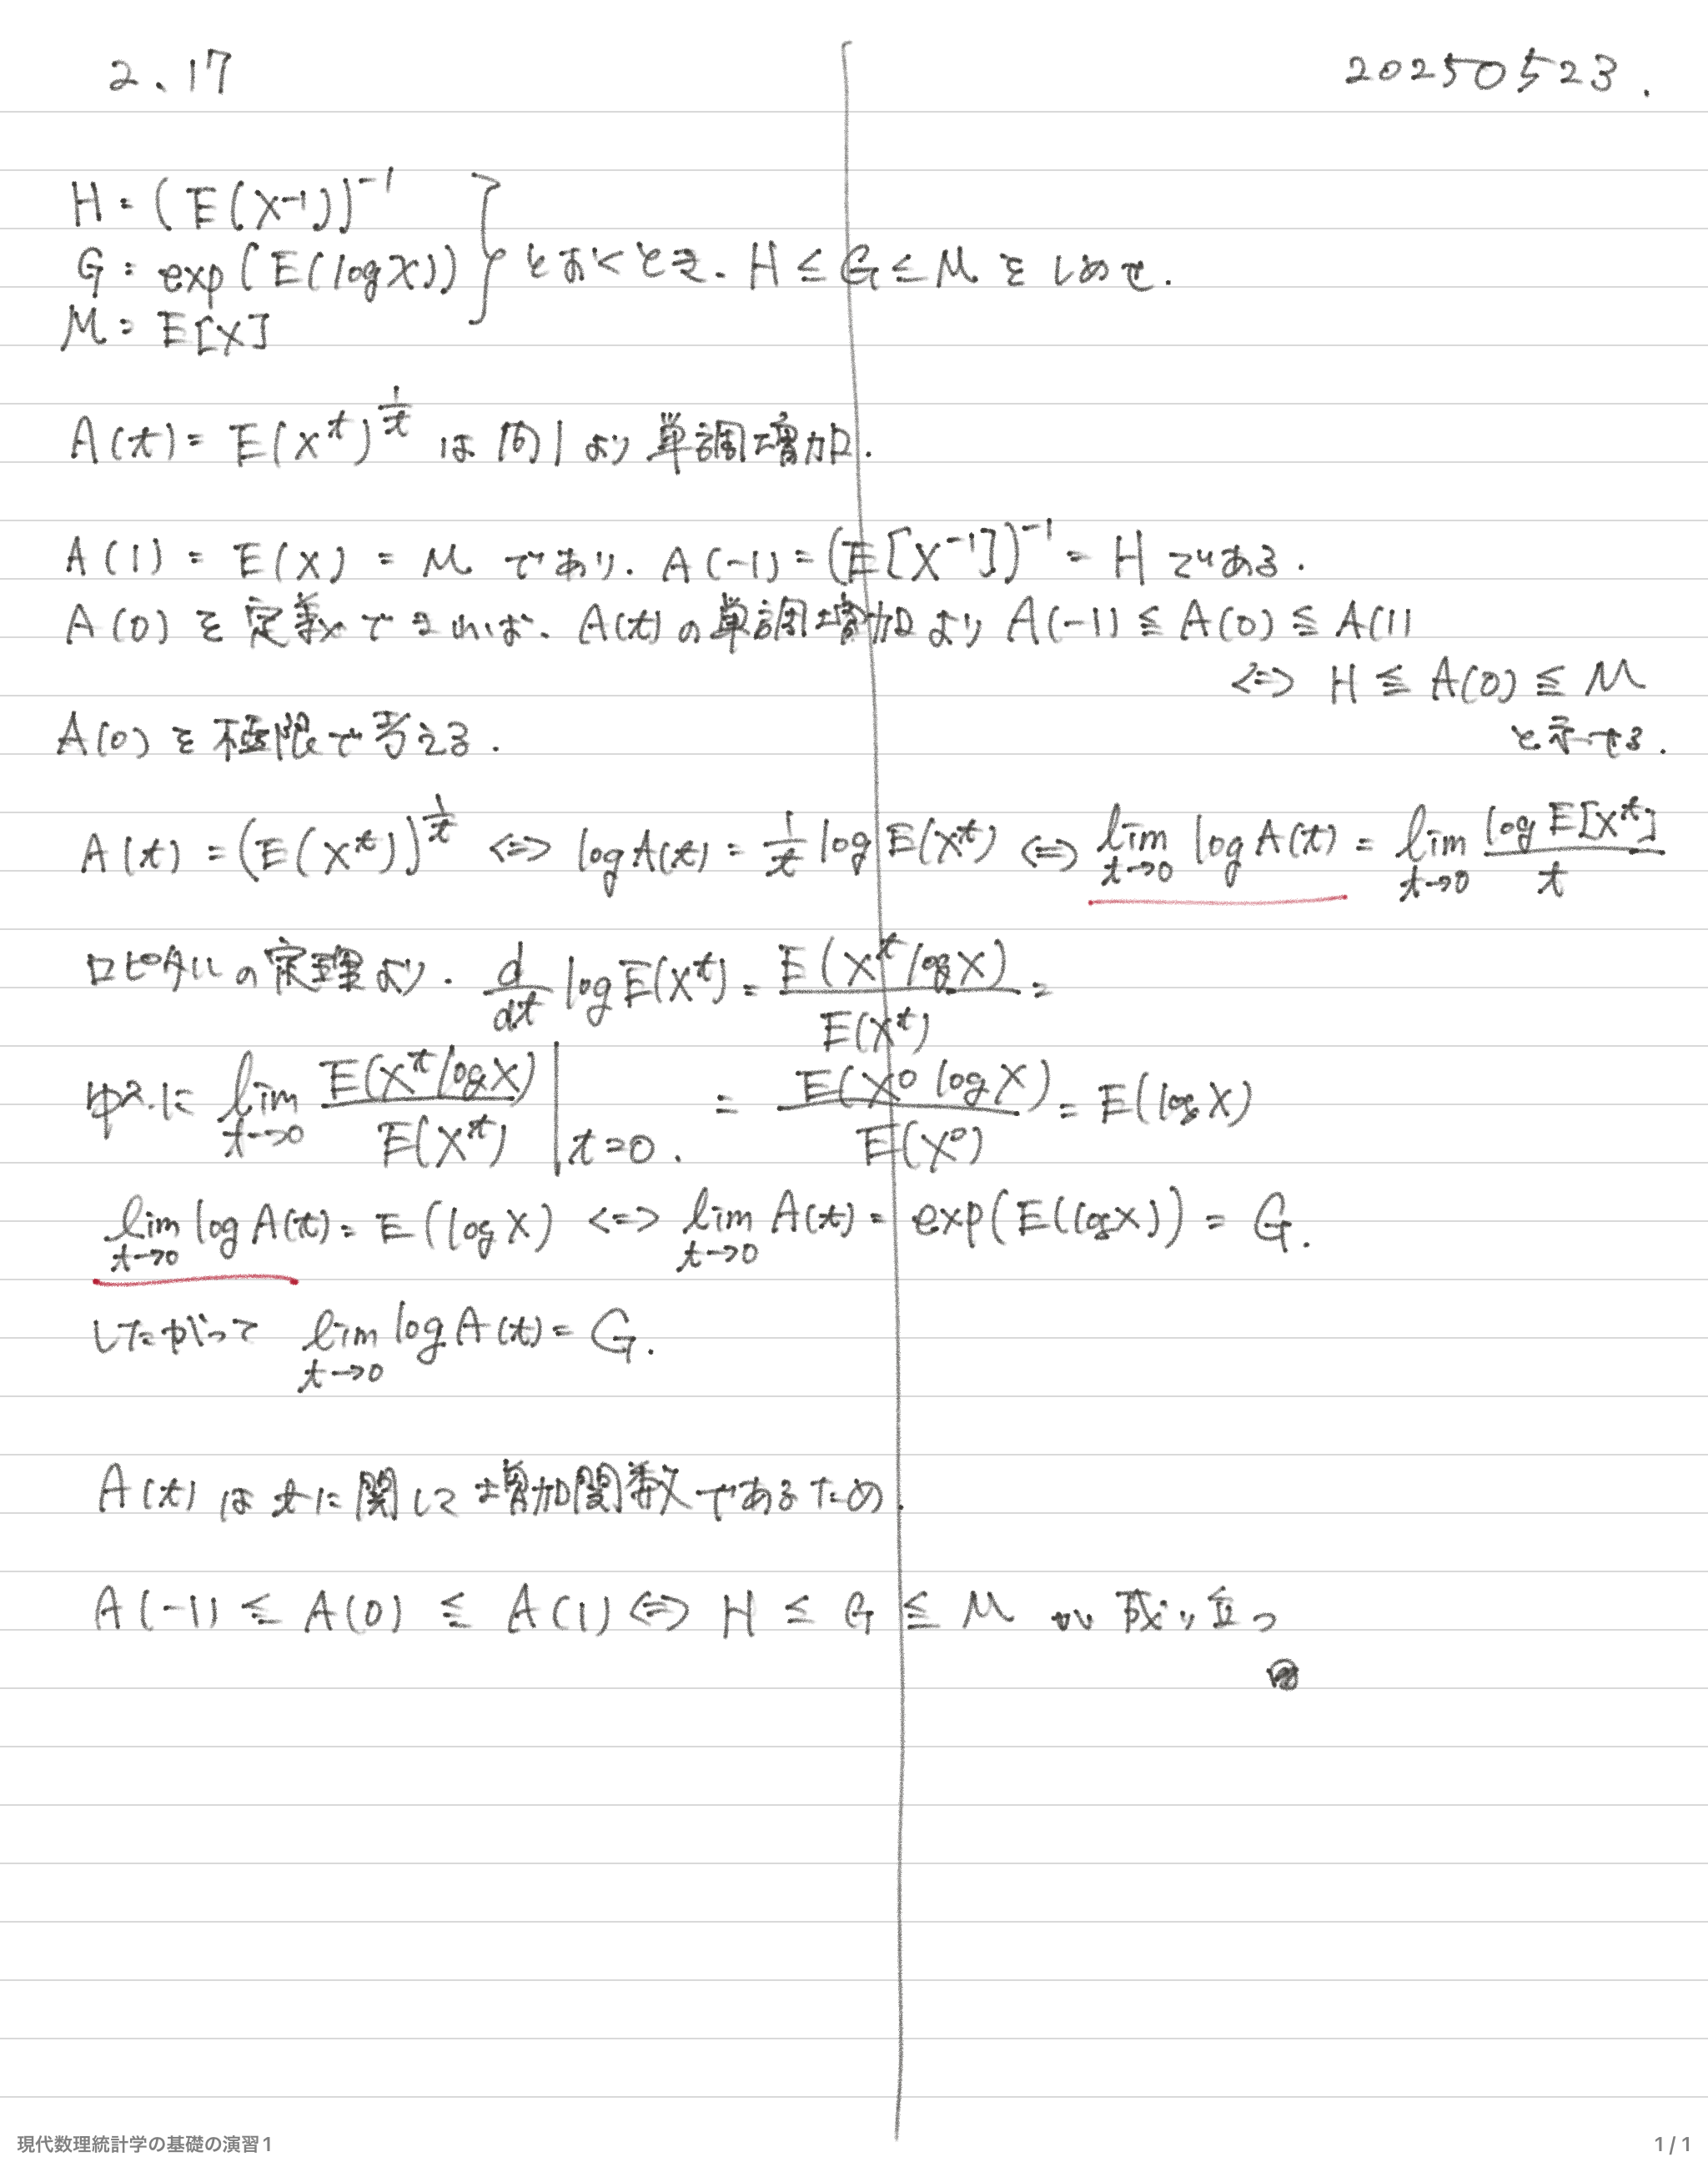 2.17
20250523.
H = (E(X^{-1}))^{-1}
G = exp(E(log X)) } とおくとき. H ≤ G ≤ M をしめせ.
M = E[X]
A(t) = E(X^t)^{1/t} は 問1より 単調増加.
A(1) = E(X) = M であり. A(-1) = (E[X^{-1}])^{-1} = H である.
A(0) を定義できれば、A(t)の単調増加より A(-1) ≦ A(0) ≦ A(1)
⇔ H ≦ A(0) ≦ M
と示せる.
A(0)を極限で考える.
A(t) = (E(X^t))^{1/t} ⇔ log A(t) = 1/t log E(X^t) ⇔ lim_{t→0} log A(t) = lim_{t→0} log E[X^t] / t
ロピタルの定理より. d/dt log E(X^t) = E(X^t log X) / E(X^t) =
ゆえに lim_{t→0} E(X^t log X) / E(X^t) |_{t=0}. = E(X^0 log X) / E(X^0) = E(log X)
lim_{t→0} log A(t) = E(log X) ⇔ lim_{t→0} A(t) = exp(E(log X)) = G.
したがって lim_{t→0} log A(t) = G.
A(t)は tに関して 増加関数であるため.
A(-1) ≦ A(0) ≦ A(1) ⇔ H ≤ G ≦ M が 成り立つ
現代数理統計学の基礎の演習1
1 / 1